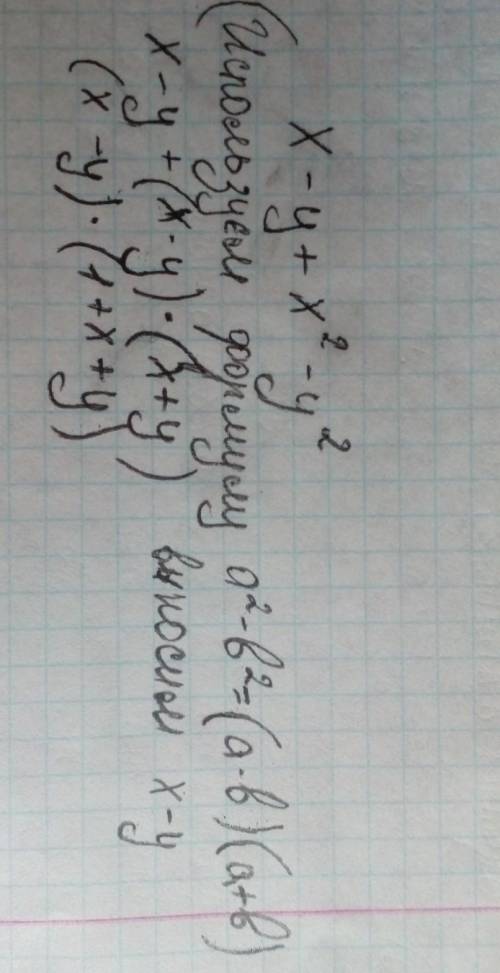 x - y + x² - y²
(Используем формулу a²-b²=(a-b)(a+b)
x - y + (x-y)·(x+y) выносим x-y
(x-y)·(1+x+y)